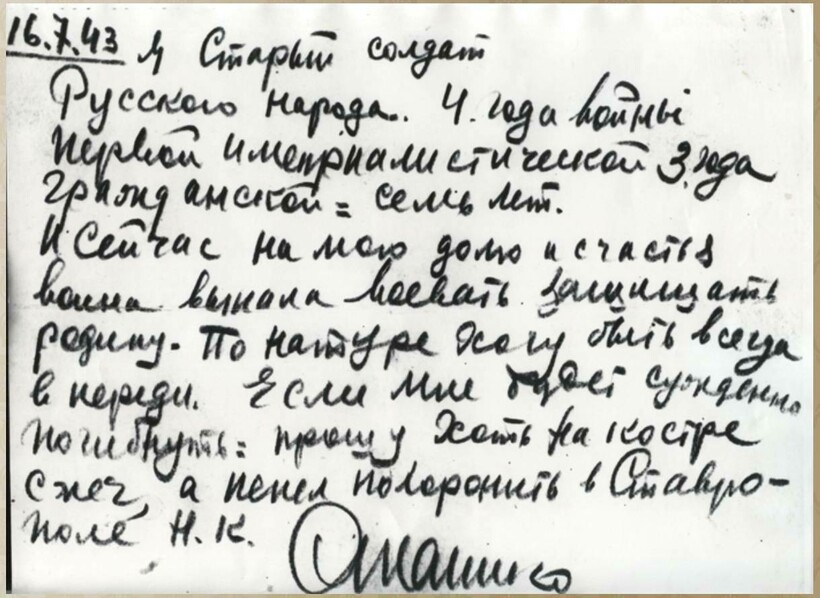 16.7.43 Я Старый солдат
Русского народа. 4. года войны
первой империалистической 3. года
гражданской = семь лет.
И сейчас на мою долю и счастья
воина выпала воевать защищать
родину. По натуре хочу быть всегда
в переди. Если мне будет сужденно
погибнуть = прошу хоть на костре
сжеч, а пепел похоронить в Ставро-
поле Н.К.
Апанасенко